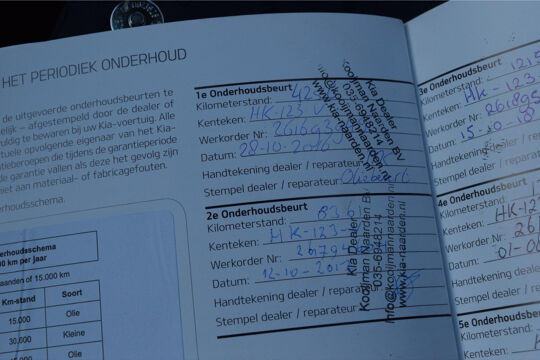 HET PERIODIEK ONDERHOUD
de uitgevoerde onderhoudsbeurten te
elijk – afgestempeld door de dealer of
vuldig te bewaren bij uw Kia-voertuig. Alle
tuele opvolgende eigenaar van het Kia-
tieberoepen die tijdens de garantieperiode
de garantie vallen als deze het gevolg zijn
niet aan materiaal- of fabricagefouten.
rhoudsschema.
rhoudsschema
00 km per jaar
aanden of 15.000 km
Km-stand Soort
15.000 Olie
30.000 Kleine
45.000 Olie
1e Onderhoudsbeurt
Kilometerstand: 423
Kenteken: HK-123
Werkorder Nr: 261693
Datum: 28-10-2016
Handtekening dealer / reparateur
Stempel dealer / reparateur
Kia Dealer
Kooijman Naarden BV
035-6948214
info@kooijmannaarden.nl
www.kia-naarden.nl
2e Onderhoudsbeurt
Kilometerstand:
Kenteken: HK-123-
Werkorder Nr: 261794
Datum: 12-10-201
Handtekening dealer / reparateur
Stempel dealer / reparateur
Kia Dealer
Kooijman Naarden BV
035-6948214
info@kooijmannaarden.nl
www.kia-naarden.nl
3e Onderhoudsbeurt
Kilometerstand: 1215
Kenteken: HK-123
Werkorder Nr: 261895
Datum: 15-10-18
Handtekening dealer
Stempel dealer / re
4e Onderhoudsbeurt
Kilometerstand:
Kenteken: HK-12
Werkorder Nr: 26
Datum: 01-0
Handtekening
Stempel dealer
5e Onderhouds
Kilometerstand:
Kenteken: